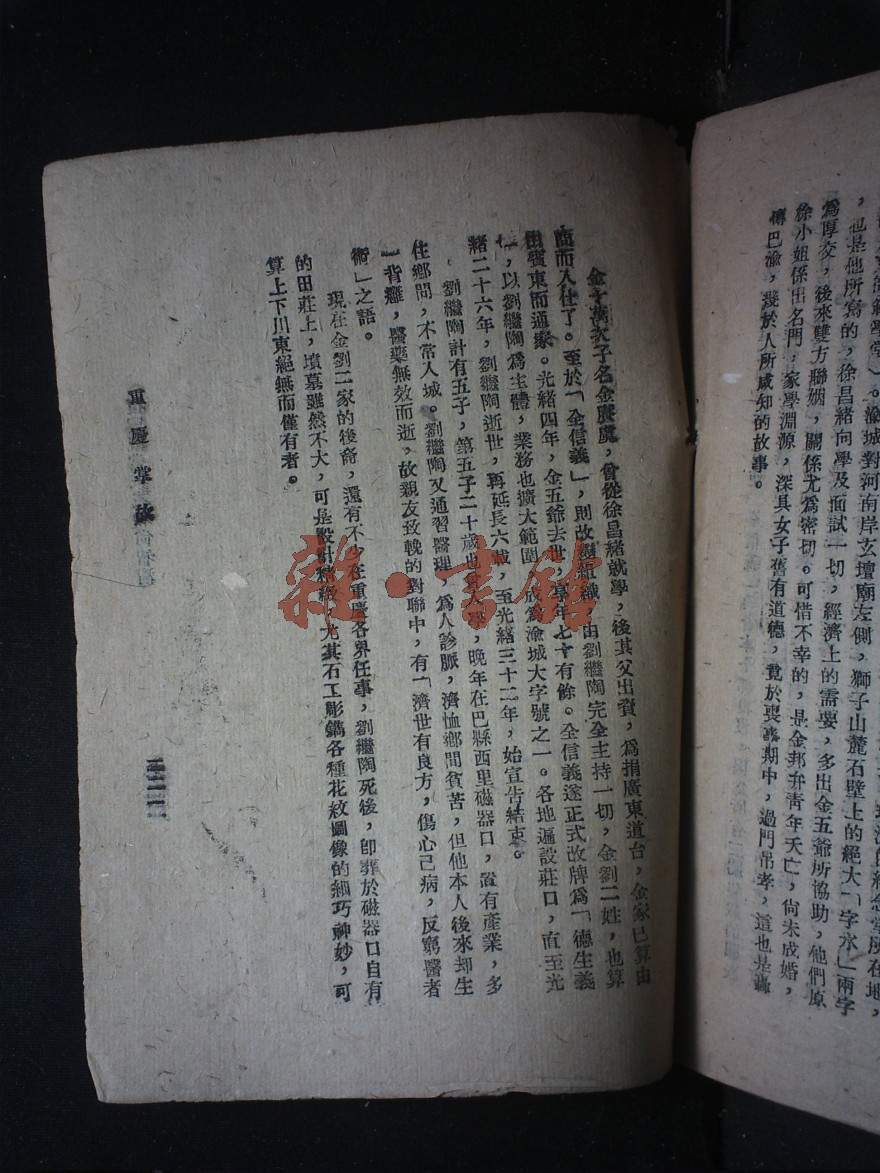 ，也是他所寫的，徐昌緒向學及面試一切，經濟上的需要，多出金五爺所協助，他們原
為厚交，後來雙方聯姻，關係尤為密切。可惜不幸的，是金邦弁青年夭亡，尙未成婚，
徐小姐係出名門，家學淵源，深具女子舊有道德，竟於喪事期中，過門吊孝，這也是轟
傳巴渝，幾於人所咸知的故事。
金十萬次子名金慶虞，曾從徐昌緒就學，後其父出資，為捐廣東道台，金家已算由
商而入仕了。至於「全信義」，則改組組織，由劉繼陶完全主持一切，金劉二姓，也算
由賓東而通家。光緒四年，金五爺去世，享年七十有餘。全信義遂正式改牌為「德生義
」，以劉繼陶為主體，業務也擴大範圍，成為渝城大字號之一。各地遍設莊口，直至光
緒二十六年，劉繼陶逝世，再延長六載，至光緒三十二年，始宣告結束。
劉繼陶計有五子，第五子二十歲也入學，晚年在巴縣西里磁器口，置有產業，多
住鄉間，不常入城。劉繼陶又通習醫理，為人診脈，濟恤鄉間貧苦，但他本人後來却生
一背癰，醫藥無效而逝，故親友致輓的對聯中，有「濟世有良方，傷心己病，反窮醫者
術」之語。
現在金劉二家的後裔，還有不少在重慶各界任事，劉繼陶死後，卽葬於磁器口自有
的田莊上，墳墓雖然不大，可是設計精緻，尤其石工彫鐫各種花紋圖像的細巧神妙，可
算上下川東絕無而僅有者。
重慶掌故
雜·書館